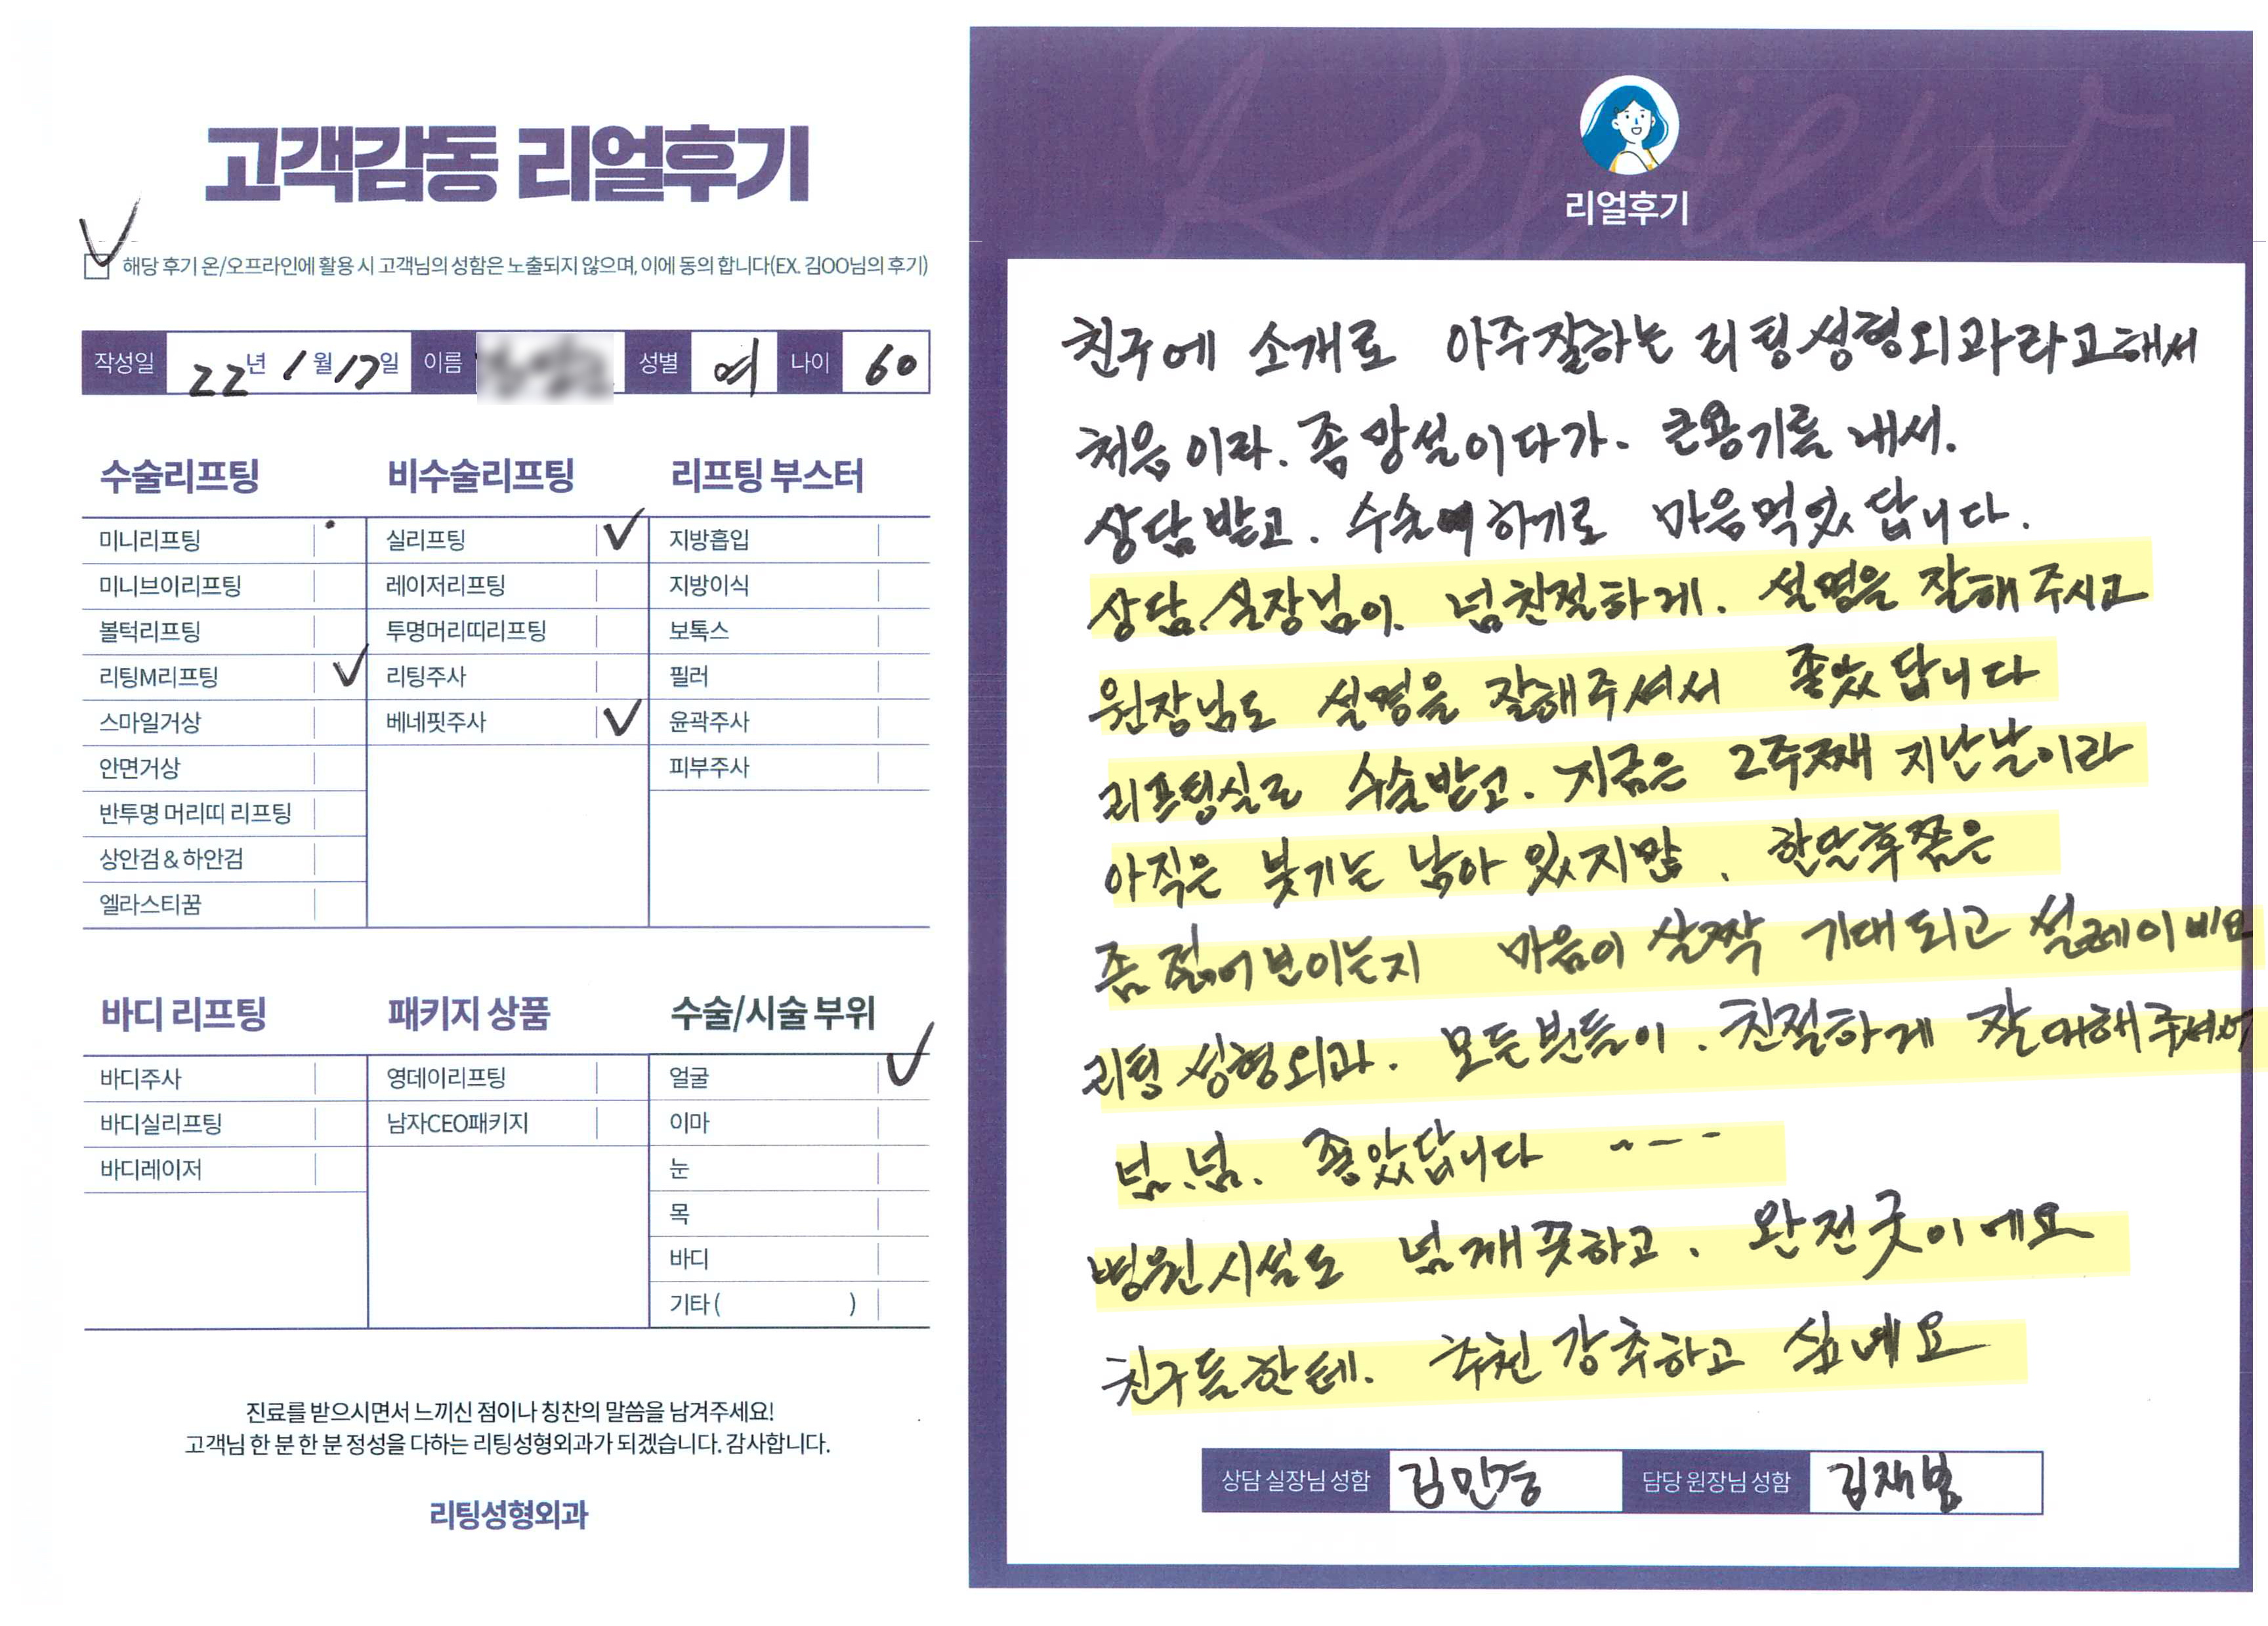 고객감동 리얼후기
해당 후기 온/오프라인에 활용 시 고객님의 성함은 노출되지 않으며, 이에 동의 합니다(EX. 김OO님의 후기)
작성일 22년 1월 17일 이름 성별 여 나이 60
수술리프팅
미니리프팅
미니브이리프팅
볼턱리프팅
리팅M리프팅 ✓
스마일거상
안면거상
반투명 머리띠 리프팅
상안검 & 하안검
엘라스티꿈
비수술리프팅
실리프팅 ✓
레이저리프팅
투명머리띠리프팅
리팅주사
베네핏주사 ✓
리프팅 부스터
지방흡입
지방이식
보톡스
필러
윤곽주사
피부주사
바디 리프팅
바디주사
바디실리프팅
바디레이저
패키지 상품
영데이리프팅
남자CEO패키지
수술/시술 부위
얼굴 ✓
이마
눈
목
바디
기타 ( )
진료를 받으시면서 느끼신 점이나 칭찬의 말씀을 남겨주세요!
고객님 한 분 한 분 정성을 다하는 리팅성형외과가 되겠습니다. 감사합니다.
리팅성형외과
Review
리얼후기
친구에 소개로 아주잘하는 리팅성형외과라고해서
처음이라. 좀 망설이다가. 큰용기를 내서.
상담받고. 수술 하기로 마음먹었답니다.
상담.실장님이. 넘친절하게. 설명을 잘해주시고
원장님도 설명을 잘해주셔서 좋았답니다
리프팅실로 수술받고. 지금은 2주째 지난날이라
아직은 붓기는 남아 있지만. 한달후쯤은
좀 젊어보이는지 마음이 살짝 기대되고 설레이
리팅성형외과. 모든분들이. 친절하게 잘대해주셔서
넘.넘. 좋았답니다 ~---
병원시설도 넘깨끗하고. 완전굿이에요
친구들한테. 추천강추하고 싶네요
상담 실장님 성함 김민경 담당 원장님 성함 김재봉